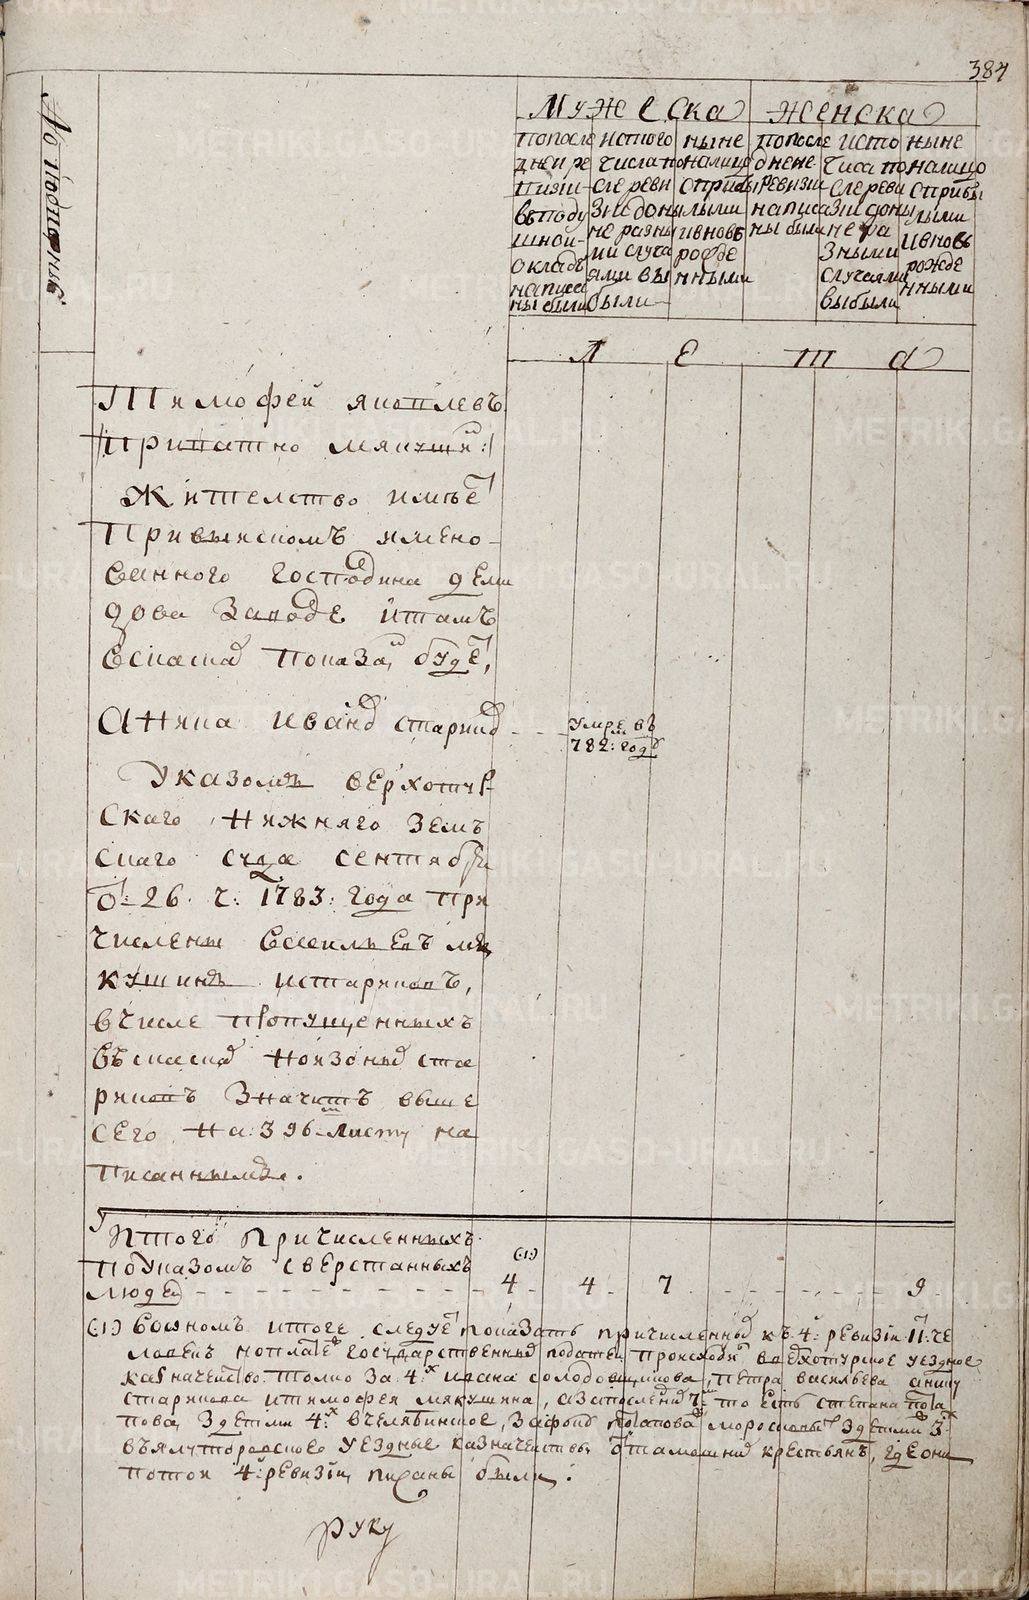 384
Мужеска
женска
попосле
дней ре
визи
въподу
шной
окладъ
написа
ны были
истого
числа по
сле реви
зии до ны
не разны
ми случа
ями вы
были
ныне
налицо
с прибы
лыми
ивновь
рожде
нными
попосле
дней
ревизии
написа
ны были
исто
числа по
сле реви
зии доны
не ра
зными
случаями
выбыли
ныне
налицо
с прибы
лыми
ивновь
рожде
нными
Л е т а
Тимофей яковлевъ
жителство имѣе
Привыйскомъ имено
ванного господина деми
дова Заводе итамъ
показа буде
Аника Иванъ старико
умре въ
782: год
Указомъ верхотур
скаго Нижняго Земъ
скаго суда сентября
о: 26. ч: 1783: года при
числены
кушинъ истариковъ,
вчисле пропущенныхъ
стариковъ Значитъ выше
сего на: 396 листу на
писаннымъ.
Итого причисленныхъ
поуказомъ сверстанныхъ
людей
(1)
4 4 7 9
(1) Воономъ итоге следуе показать причисленны къ 4: ревизии 11: че
ловекъ ноплате государственны податей происходи ввѣрхотурское уездное
казначейство толко за 4:х ивана солодовщикова, петра васильева анику
старикова итимофея мякушина, азапоследни 7: то есть степана пота
пова, здетми 4:х вчелябинское, потапова здетми 3:
въялуторовское уездные казначействы тамошни крестьянъ, где они
потои 4: ревизии писаны были.
руку